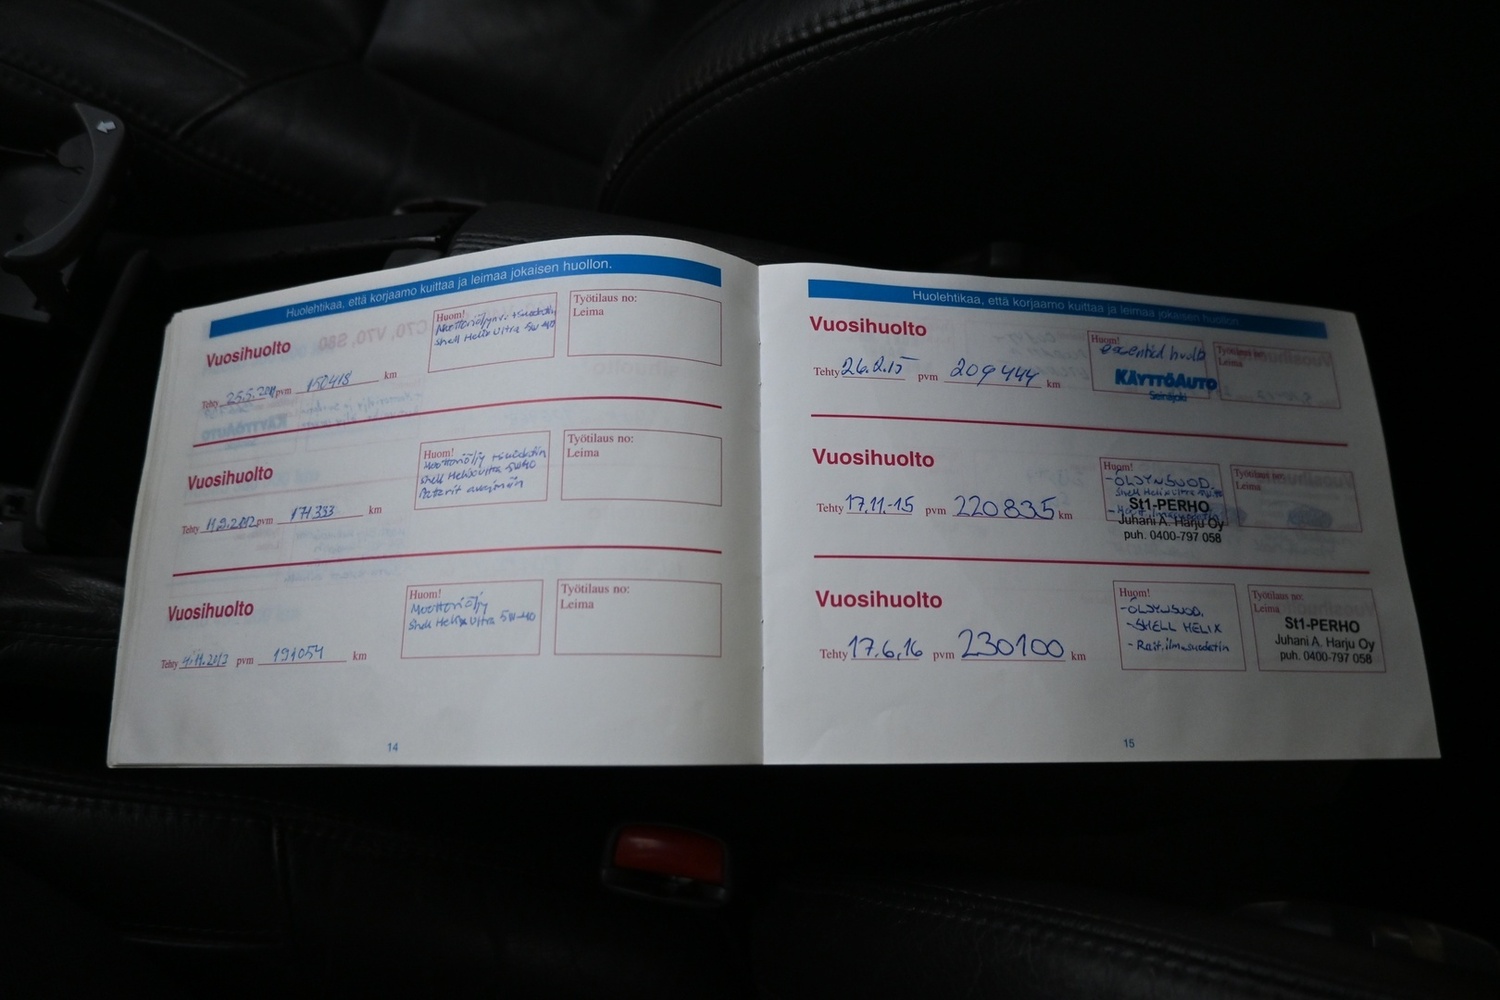 Huolehtikaa, että korjaamo kuittaa ja leimaa jokaisen huollon.
Vuosihuolto
Tehty 25.5. pvm 150418 km
Huom!
Shell Helix Ultra 5W-40
Työtilaus no:
Leima
C70, V70, S80
Vuosihuolto
Tehty 11.9.2012 pvm 171333 km
Huom!
Moottoriöljy + suodatin
Shell Helix Ultra 5W40
Työtilaus no:
Leima
Vuosihuolto
Tehty 4.11.2013 pvm 191054 km
Huom!
Moottoriöljy
Shell Helix Ultra 5W-40
Työtilaus no:
Leima
14
Huolehtikaa, että korjaamo kuittaa ja leimaa jokaisen huollon.
Vuosihuolto
Tehty 26.2.15 pvm 209444 km
Huom!
essential huolto
KÄYTTÖAUTO
Seinäjoki
Työtilaus no:
Leima
Vuosihuolto
Tehty 17.11-15 pvm 220835 km
Huom!
-ÖLJYN SUOD.
Shell Helix Ultra
St1-PERHO
Juhani A. Harju Oy
puh. 0400-797 058
Työtilaus no:
Leima
Vuosihuolto
Tehty 17.6.16 pvm 230100 km
Huom!
-ÖLJYNSUOD.
-SHELL HELIX
-Rait.ilmasuodatin
Työtilaus no:
Leima
St1-PERHO
Juhani A. Harju Oy
puh. 0400-797 058
15